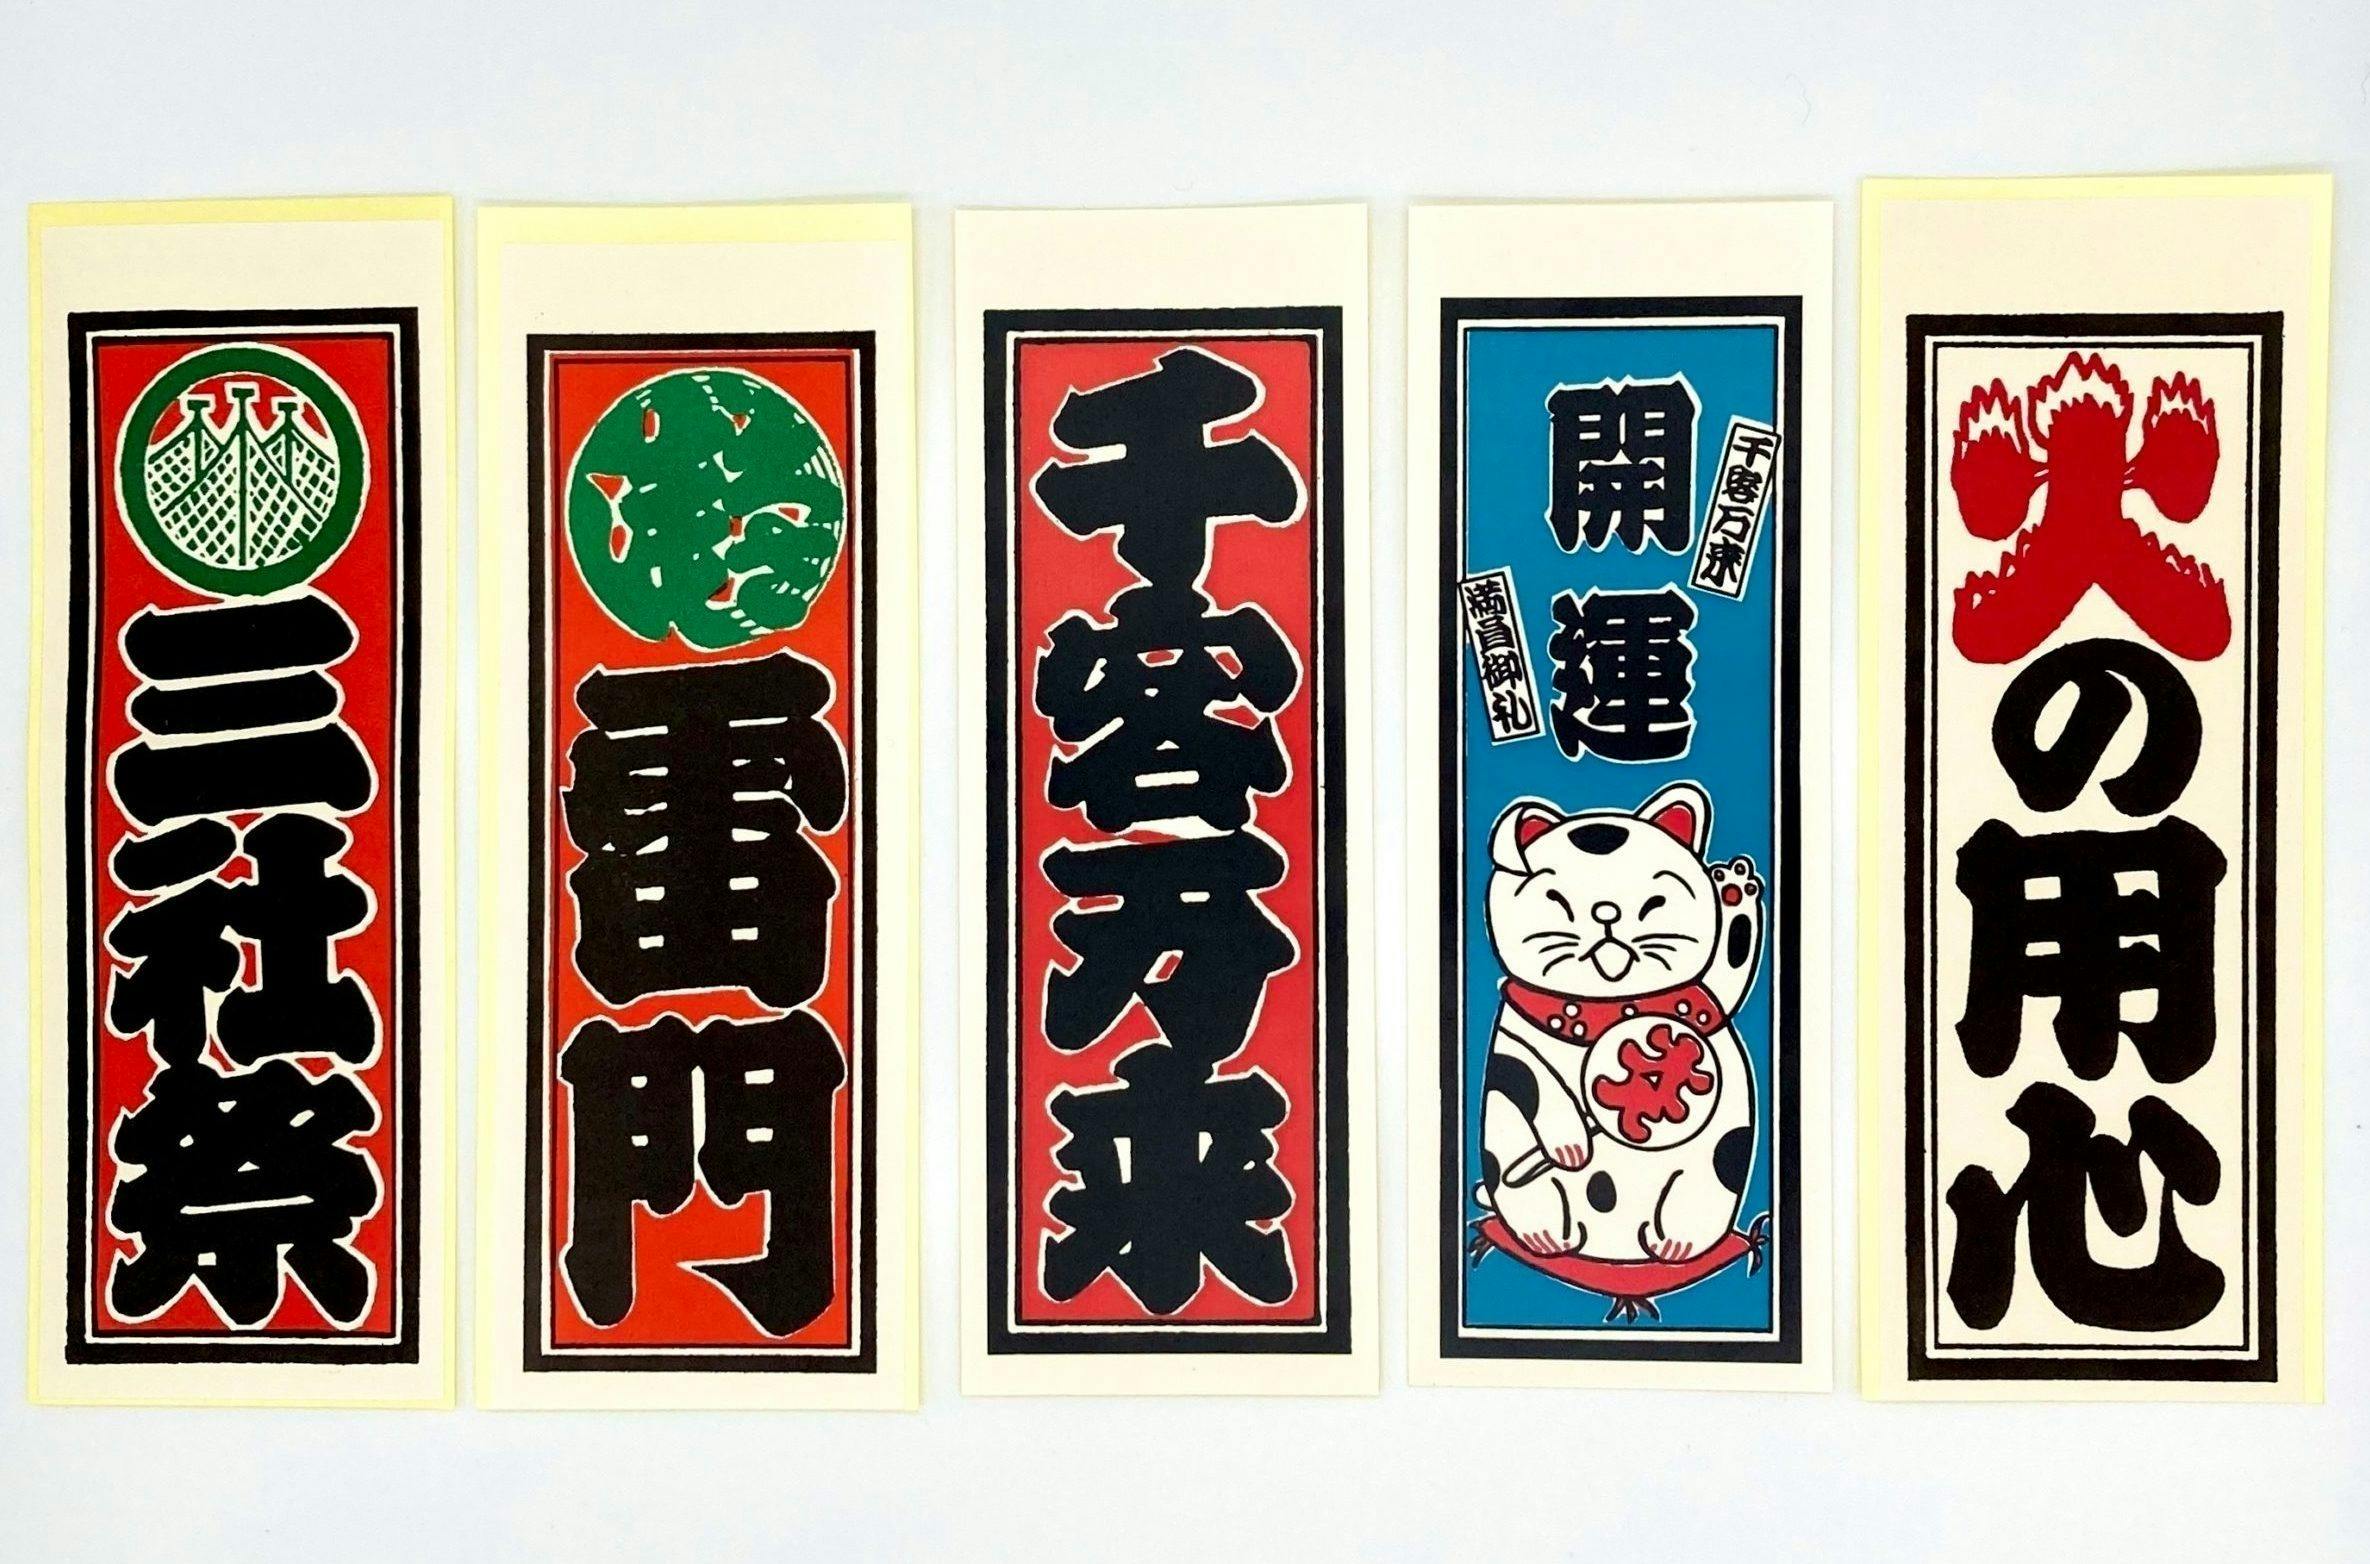 三社祭
雷門
千客万来
開運
千客万来
満員御礼
火の用心